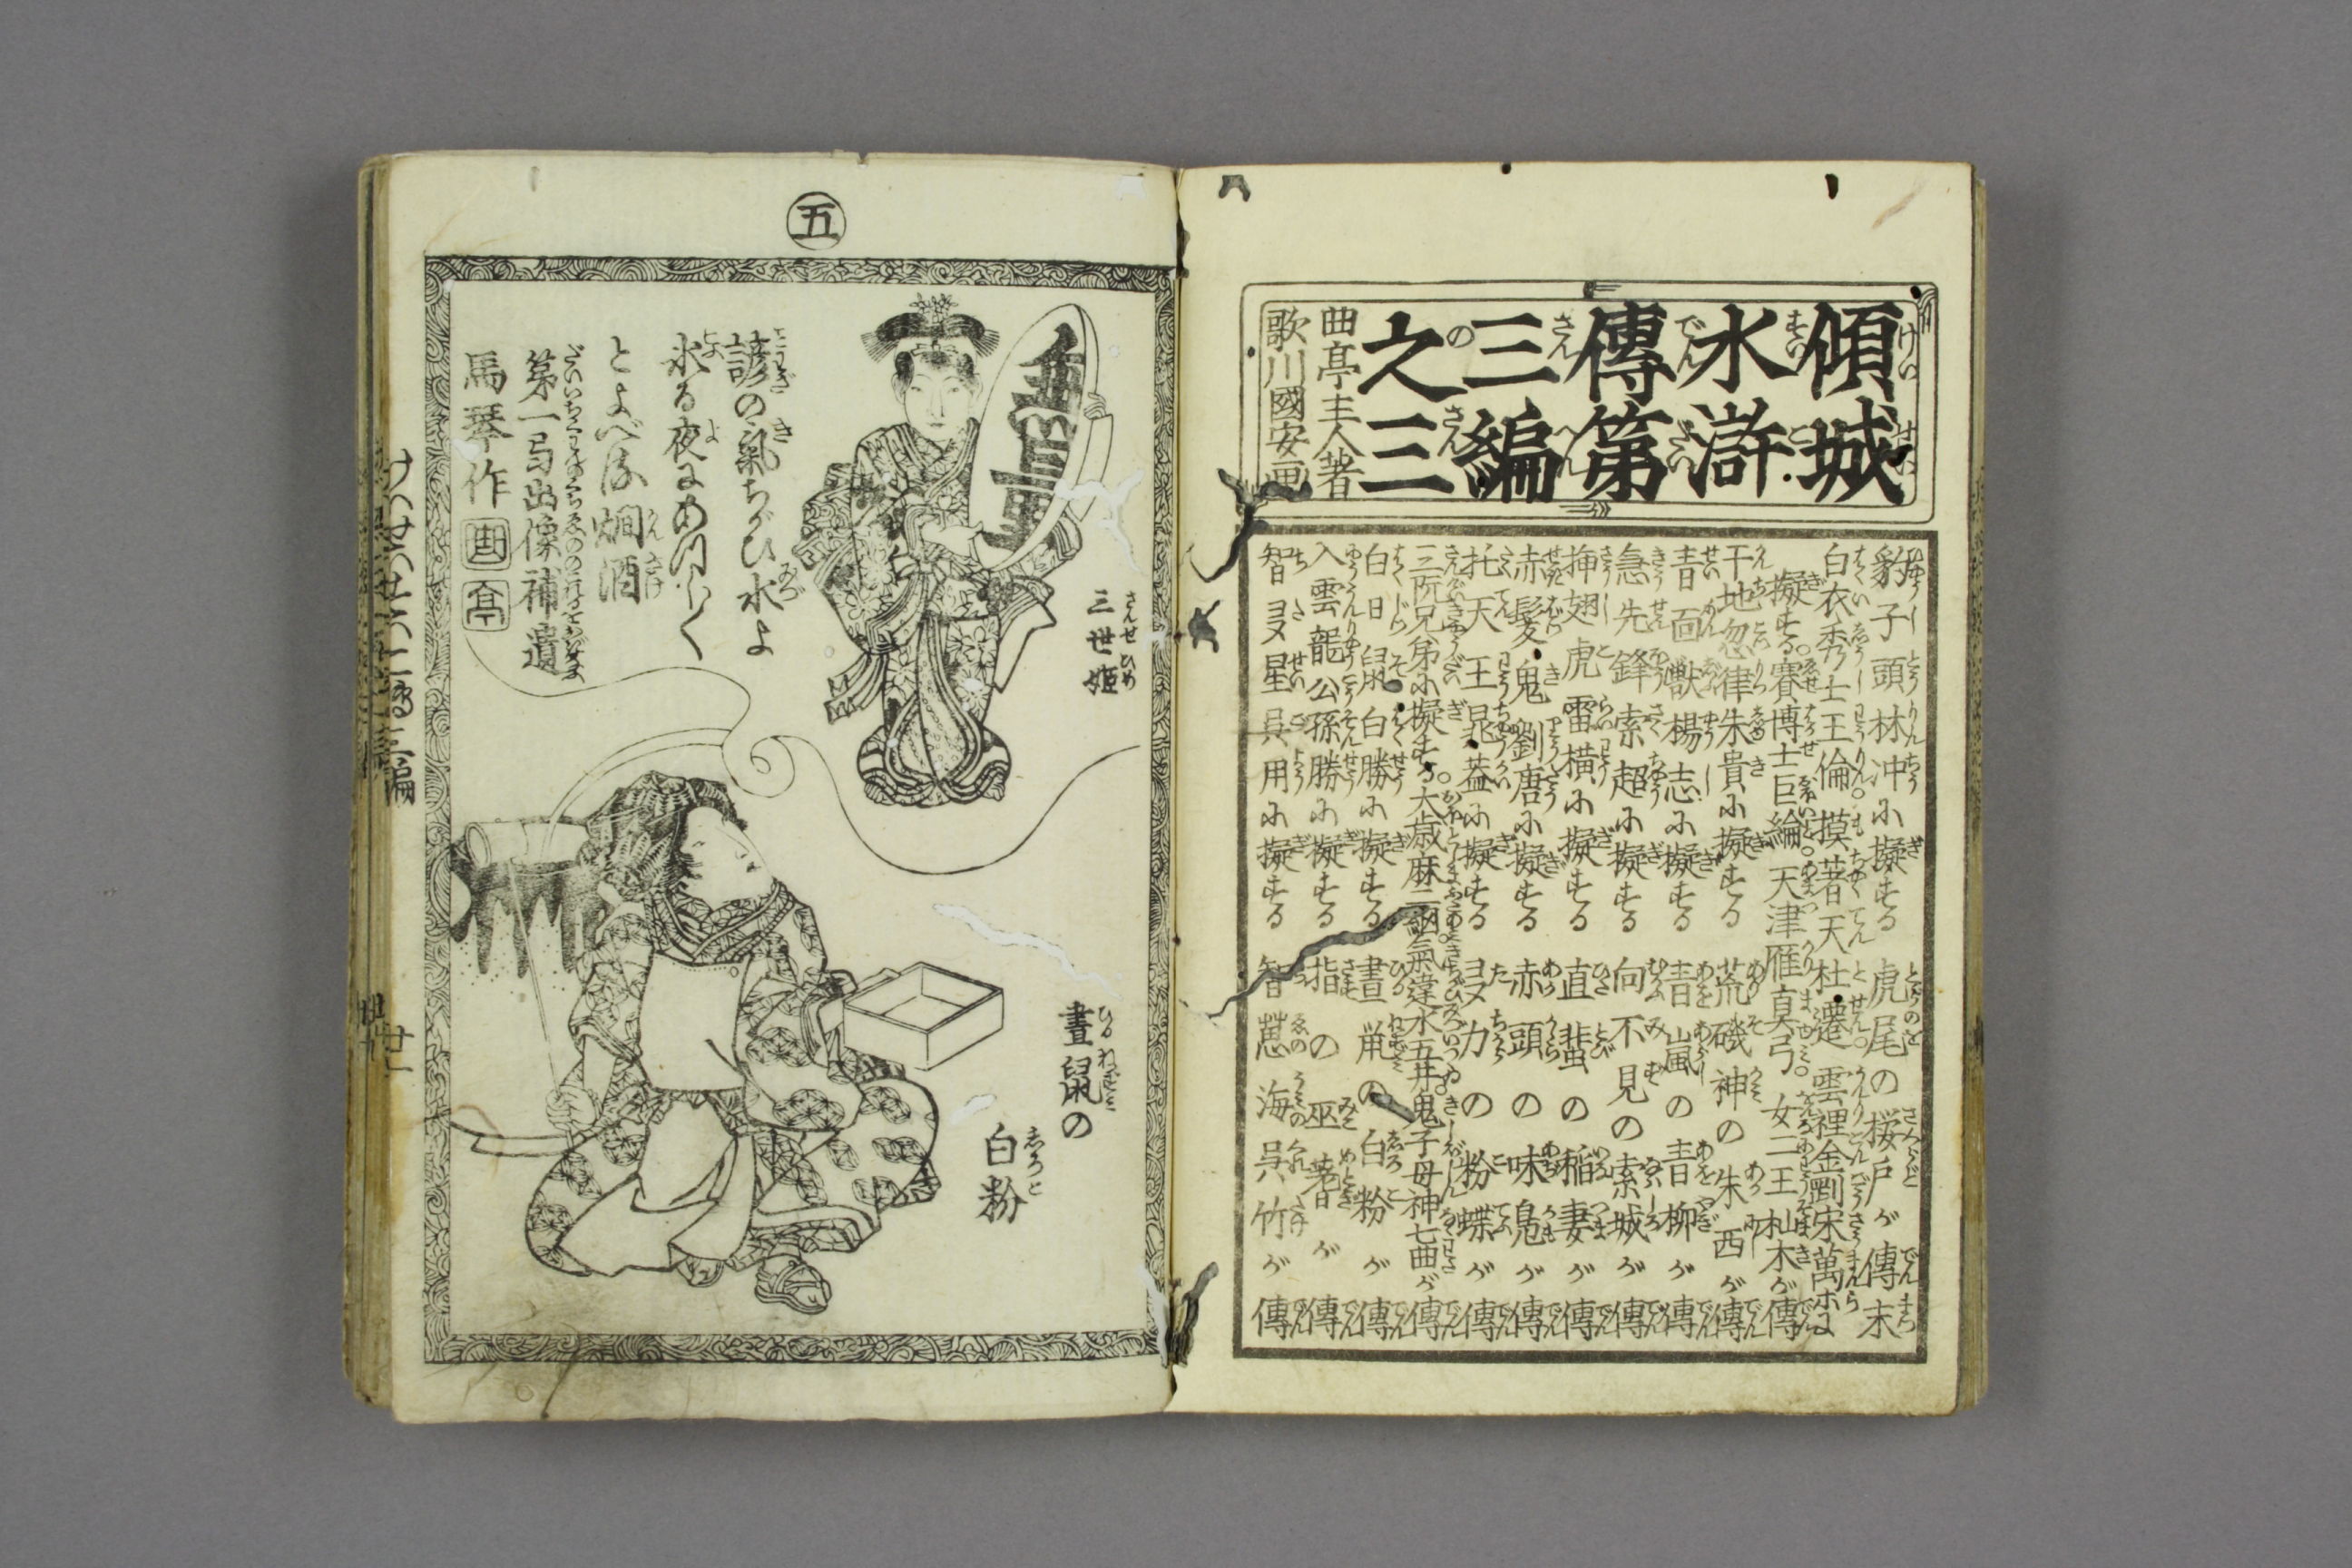 傾城
水滸
傳第
三編
之三
曲亭主人著
歌川國安画
豹子頭林冲に擬する 虎尾の桜戸が傳末
白衣秀士王倫。摸著天杜遷。雲裡金剛宋萬ホに
擬する。賽博士巨綸。天津雁真弓。女二王杣木が傳
干地忽律朱貴に擬する 荒磯神の朱西が傳
青面獣楊志に擬する 青嵐の青柳が傳
急先鋒索超に擬する 向不見の索城が傳
挿翅虎雷横に擬する 直蜚の稲妻が傳
赤髪鬼劉唐に擬する 赤頭の味鳬が傳
托天王晁蓋に擬する 多力の粉蝶が傳
三阮兄弟に擬する。大歳麻二網。氣違水五井。鬼子母神七曲が傳
白日鼠白勝に擬する 晝鼠の白粉が傳
入雲龍公孫勝に擬する 指の巫蓍が傳
智多星呉用に擬する 智慧海呉竹が傳
五
無量
三世姫
諺の氣ちがひ水よ
氷る夜に
燗酒
第一号出像補遺
馬琴作
曲亭
晝鼠の
白粉